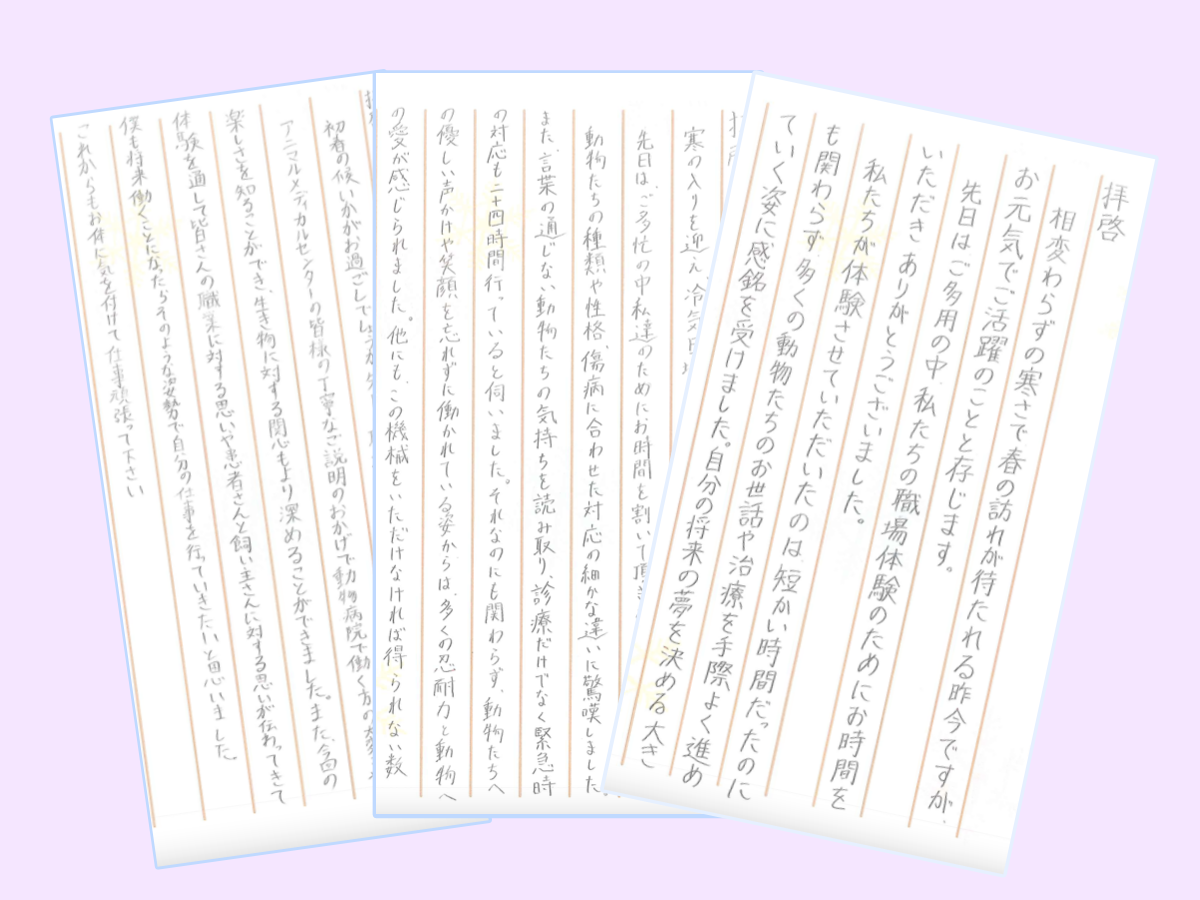 拝啓
相変わらずの寒さで、春の訪れが待たれる昨今ですが、
お元気でご活躍のことと存じます。
先日はご多用の中、私たちの職場体験のためにお時間を
いただきありがとうございました。
私たちが体験させていただいたのは、短かい時間だったのに
も関わらず、多くの動物たちのお世話や治療を手際よく進め
ていく姿に感銘を受けました。自分の将来の夢を決める大き
寒の入りを迎え、冷気日
先日は、ご多忙の中私達のためにお時間を割いて頂き
動物たちの種類や性格、傷病に合わせた対応の細かな違いに驚嘆しました。
また、言葉の通じない動物たちの気持ちを読み取り、診療だけでなく緊急時
の対応も二十四時間行っていると伺いました。それなのにも関わらず、動物たちへ
の優しい声かけや笑顔を忘れずに働かれている姿からは、多くの忍耐力と動物へ
の愛が感じられました。他にも、この機械をいただけなければ得られない数
初春の候いかがお過ごしでしょうか
アニマルメディカルセンターの皆様の丁寧なご説明のおかげで動物病院で働く方の
楽しさを知ることができ、生き物に対する関心もより深めることができました。また、今回の
体験を通して皆さんの職業に対する思いや患者さんと飼い主さんに対する思いが伝わってきて
僕も将来働くことになったらそのような姿勢で自分の仕事を行っていきたいと思いました。
これからもお体に気を付けて仕事頑張って下さい